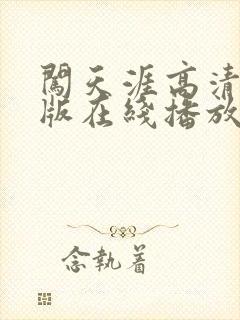 闯天涯高清
版在线播放
念执着